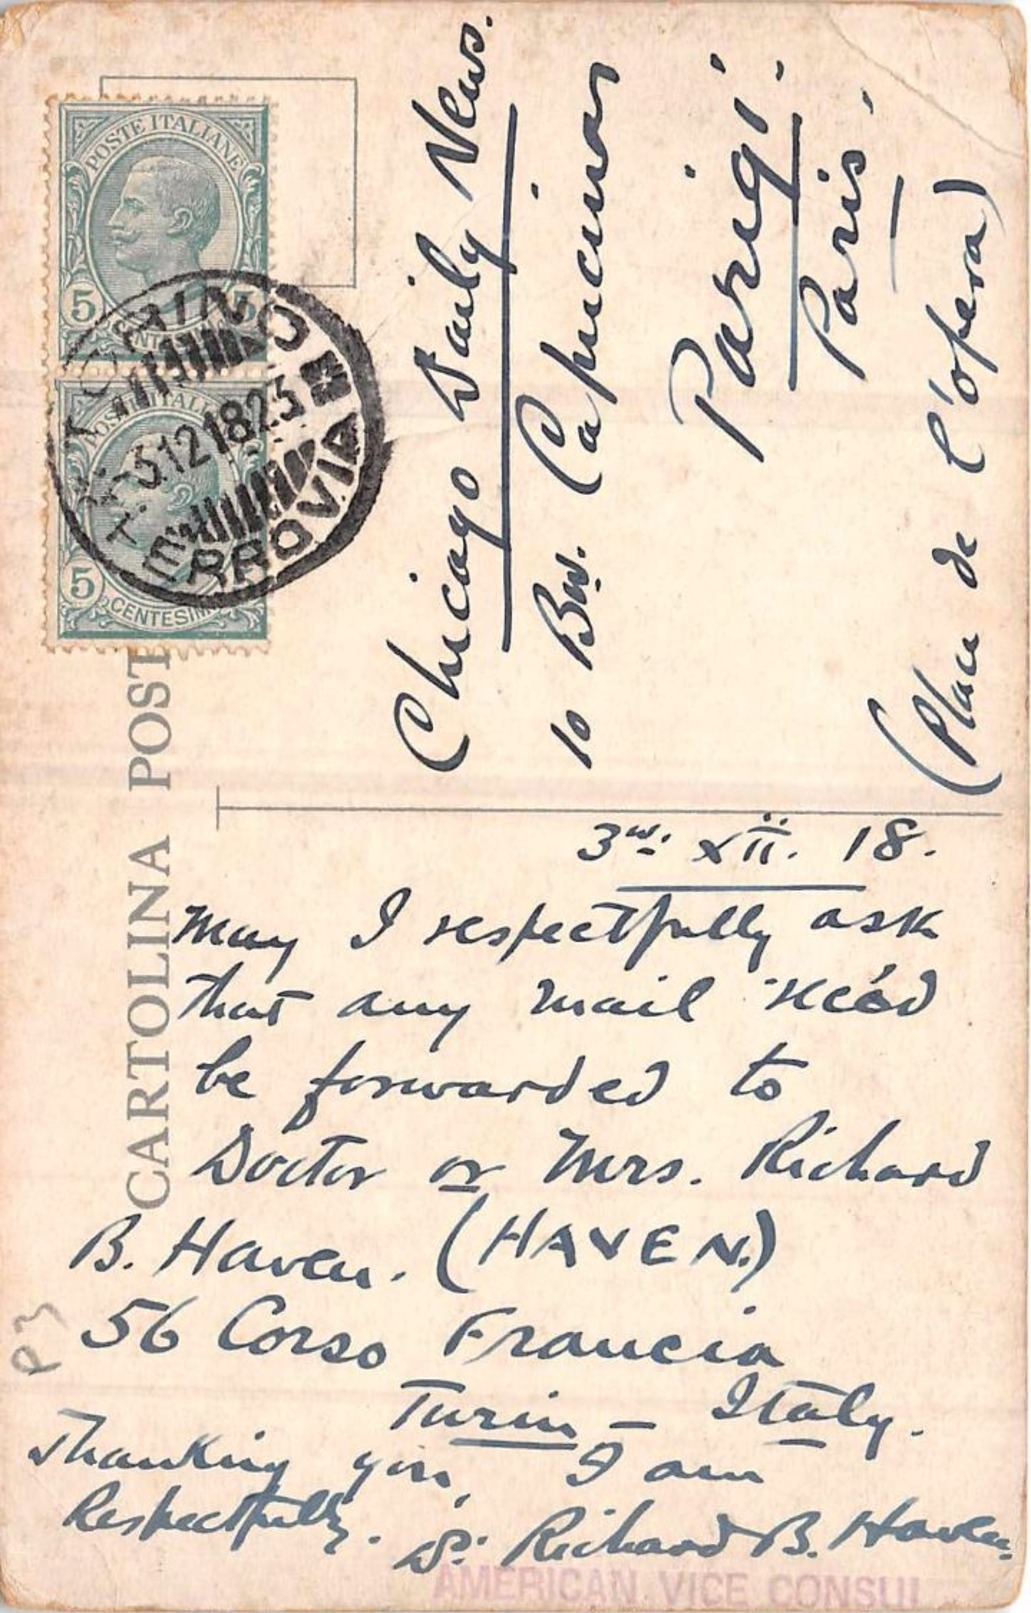 POSTE ITALIANE
5
CENTESIMI
5
TORINO
3.12 18 23
FERROVIA
CARTOLINA POST
Chicago Daily News.
10 Bw. Capucines
Parigi.
Paris.
(Place de l'opera)
3rd. XII. 18.
May I respectfully ask
that any mail rec'd
be forwarded to
Doctor or Mrs. Richard
B. Haven. (HAVEN.)
56 Corso Francia
Turin – Italy.
Thanking you, I am
Respectfully.
Dr. Richard B. Haven.
AMERICAN VICE CONSUL
P3